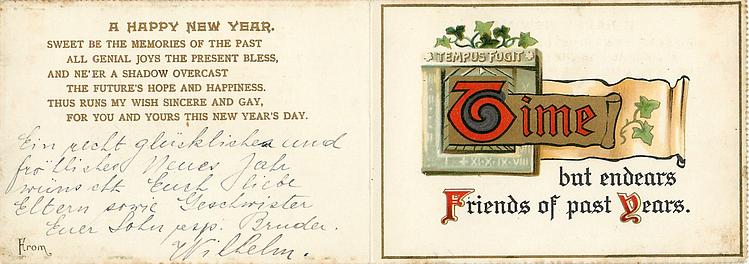 A HAPPY NEW YEAR.
SWEET BE THE MEMORIES OF THE PAST
ALL GENIAL JOYS THE PRESENT BLESS,
AND NE'ER A SHADOW OVERCAST
THE FUTURE'S HOPE AND HAPPINESS.
THUS RUNS MY WISH SINCERE AND GAY,
FOR YOU AND YOURS THIS NEW YEAR'S DAY.
Ein recht glückliches und
fröhliches Neues Jahr
wünscht Euch liebe
Eltern sowie Geschwister
Euer Sohn resp. Bruder.
Wilhelm.
From
TEMPUS FUGIT
Time
XI·X·IX·VIII
but endears
Friends of past Years.